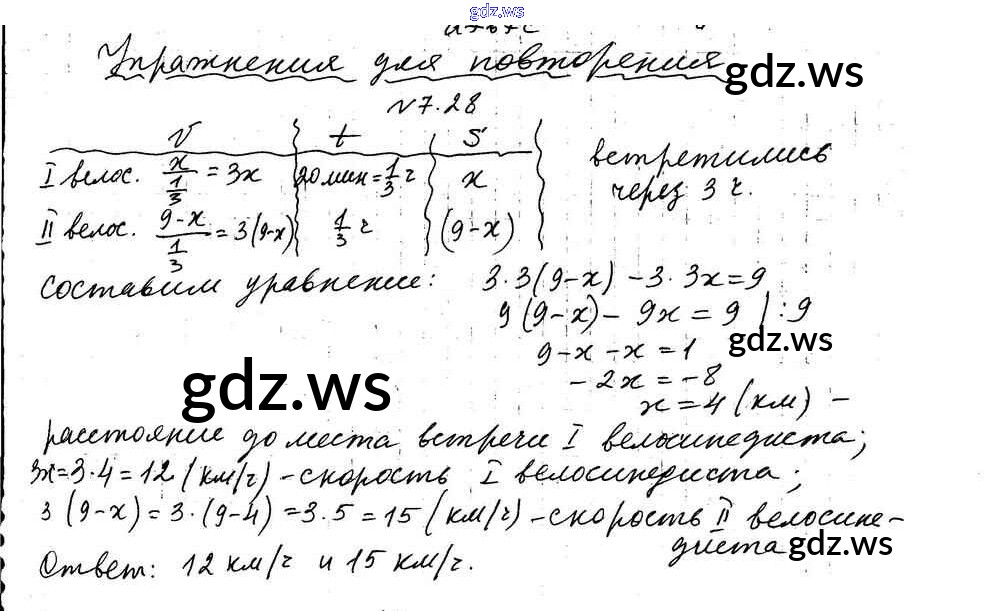 gdz.ws
Упражнения для повторения
gdz.ws
№7.28
v t S
I велос. x/(1/3) = 3x 20 мин = 1/3 ч x
II велос. (9-x)/(1/3) = 3(9-x) 1/3 ч (9-x)
встретились
через 3 ч.
составим уравнение: 3·3(9-x) - 3·3x = 9
9(9-x) - 9x = 9 | :9
9-x-x = 1
gdz.ws
-2x = -8
gdz.ws
x = 4 (км) -
расстояние до места встречи I велосипедиста;
3x = 3·4 = 12 (км/ч) - скорость I велосипедиста;
3(9-x) = 3·(9-4) = 3·5 = 15 (км/ч) - скорость II велосипе-
диста
gdz.ws
Ответ: 12 км/ч и 15 км/ч.